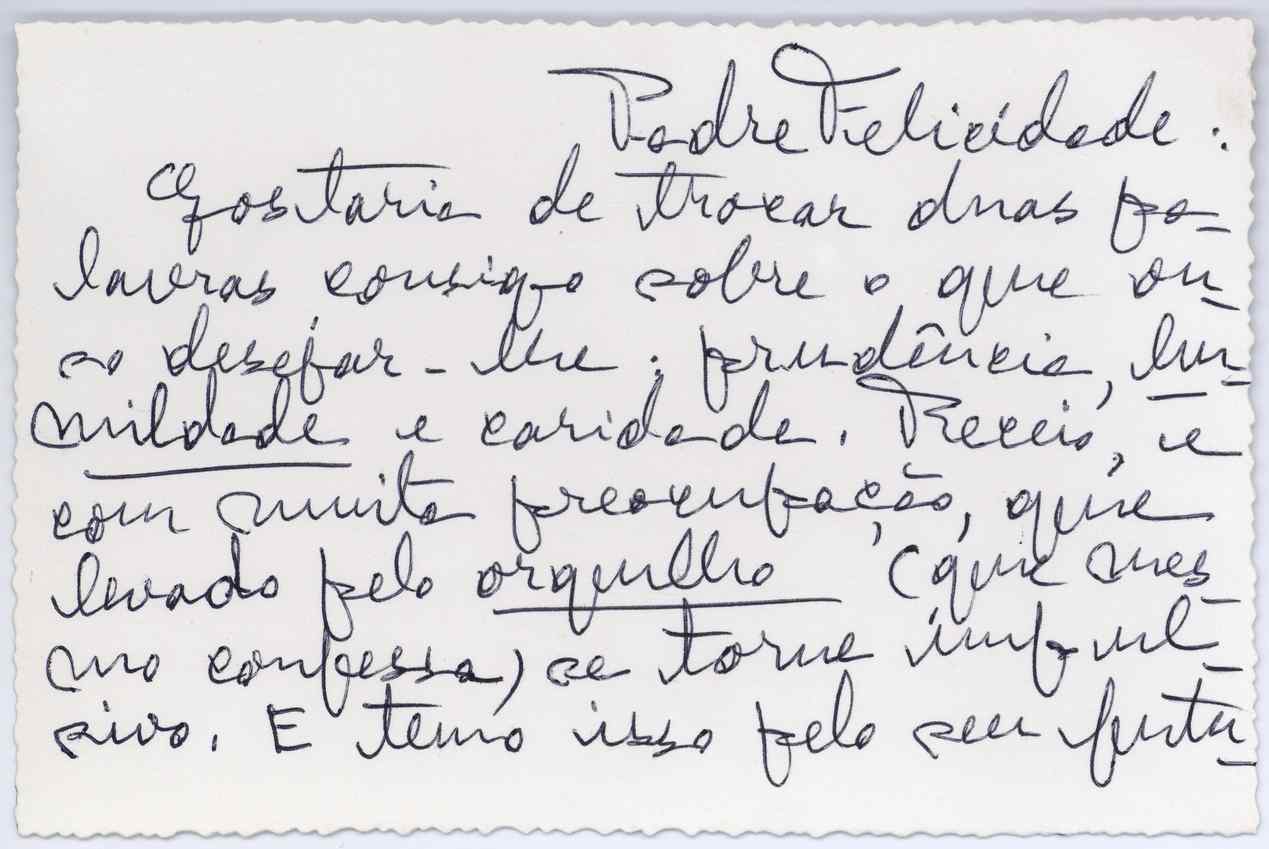 Padre Felicidade:
Gostaria de trocar duas pa-
lavras consigo sobre o que ou-
so desejar-lhe: prudência, hu-
mildade e caridade. Receio, e
com muita preocupação, que
levado pelo orgulho (que mes-
mo confessa) se torne impul-
sivo. E temo isso pelo seu futu-